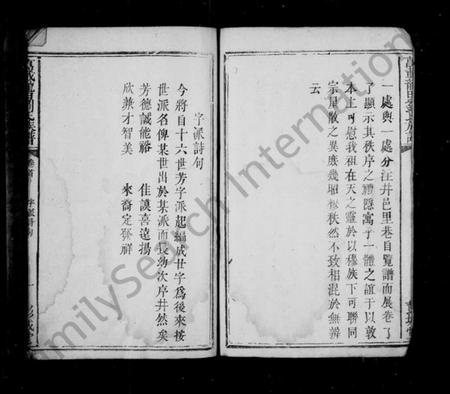 一處與一處分注井邑里巷自覧譜而展卷了
了顯示其秩序之禮隱寓于一體之誼于以敦
本上可慰我祖在天之靈於以穆族下可聯同
宗星散之異庶幾昭穆秩然不致相混於無辨
云
字派詩句
今將自十六世芳字派起編成廿字為後來接
世派名俾某世出於某派而長幼次序井然矣
芳德誠能裕 佳謨喜遠揚
欣兼才智美 來裔定發祥
卷首
字派詩句
一
FamilySearch International